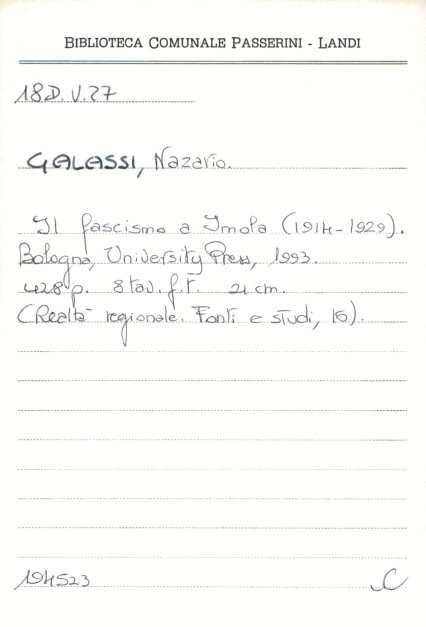 BIBLIOTECA COMUNALE PASSERINI - LANDI
18D. V. 27
GALASSI, Nazario.
Il fascismo a Imola (1914-1929).
Bologna, University Press, 1993.
428 p. 8 tav. f.t. 21 cm.
(Realtà regionale. Fonti e studi, 16).
194523
C